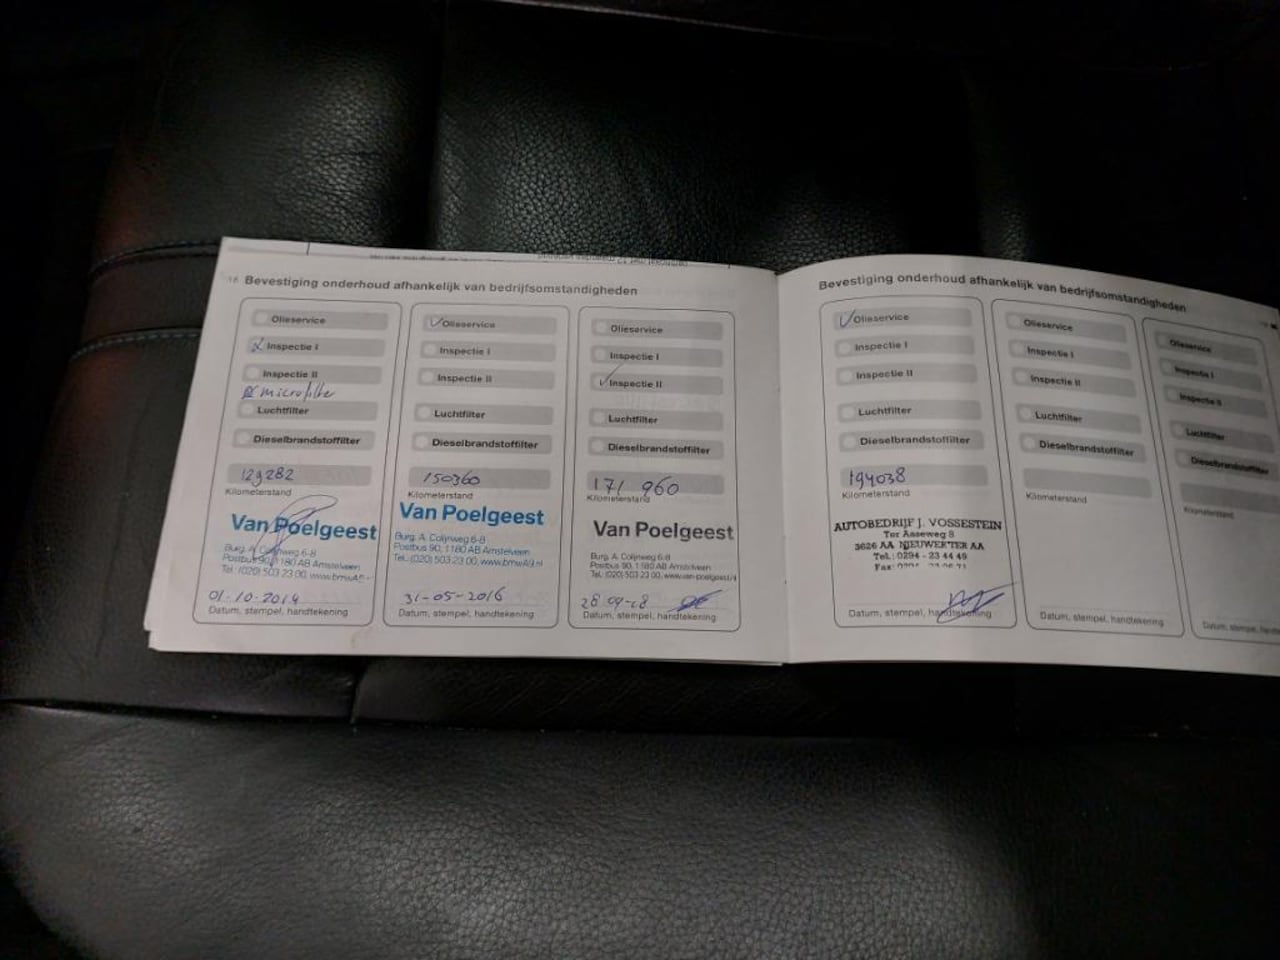 16 Bevestiging onderhoud afhankelijk van bedrijfsomstandigheden
Olieservice
Inspectie I
Inspectie II
microfilter
Luchtfilter
Dieselbrandstoffilter
129282
Kilometerstand
Van Poelgeest
Burg. A. Colijnweg 6-8
Postbus 90, 1180 AB Amstelveen
Tel.: (020) 503 23 00,
01-10-2014
Datum, stempel, handtekening
Olieservice
Inspectie I
Inspectie II
Luchtfilter
Dieselbrandstoffilter
150360
Kilometerstand
Van Poelgeest
Burg. A. Colijnweg 6-8
Postbus 90, 1180 AB Amstelveen
Tel.: (020) 503 23 00, www.bmwA9.nl
31-05-2016
Datum, stempel, handtekening
Olieservice
Inspectie I
Inspectie II
Luchtfilter
Dieselbrandstoffilter
171 960
Kilometerstand
Van Poelgeest
Burg. A. Colijnweg 6-8
Postbus 90, 1180 AB Amstelveen
Tel.: (020) 503 23 00, www.van-poelgeest.nl
28 09-18
Datum, stempel, handtekening
Bevestiging onderhoud afhankelijk van bedrijfsomstandigheden
Olieservice
Inspectie I
Inspectie II
Luchtfilter
Dieselbrandstoffilter
194038
Kilometerstand
AUTOBEDRIJF J. VOSSESTEIN
Ter Aaseweg 8
3626 AA NIEUWER TER AA
Tel.: 0294 - 23 44 49
Fax:
Datum, stempel, handtekening
Olieservice
Inspectie I
Inspectie II
Luchtfilter
Dieselbrandstoffilter
Kilometerstand
Datum, stempel, handtekening
Olieservice
Inspectie I
Inspectie II
Luchtfilter
Dieselbrandstoffilter
Kilometerstand
Datum, stempel,